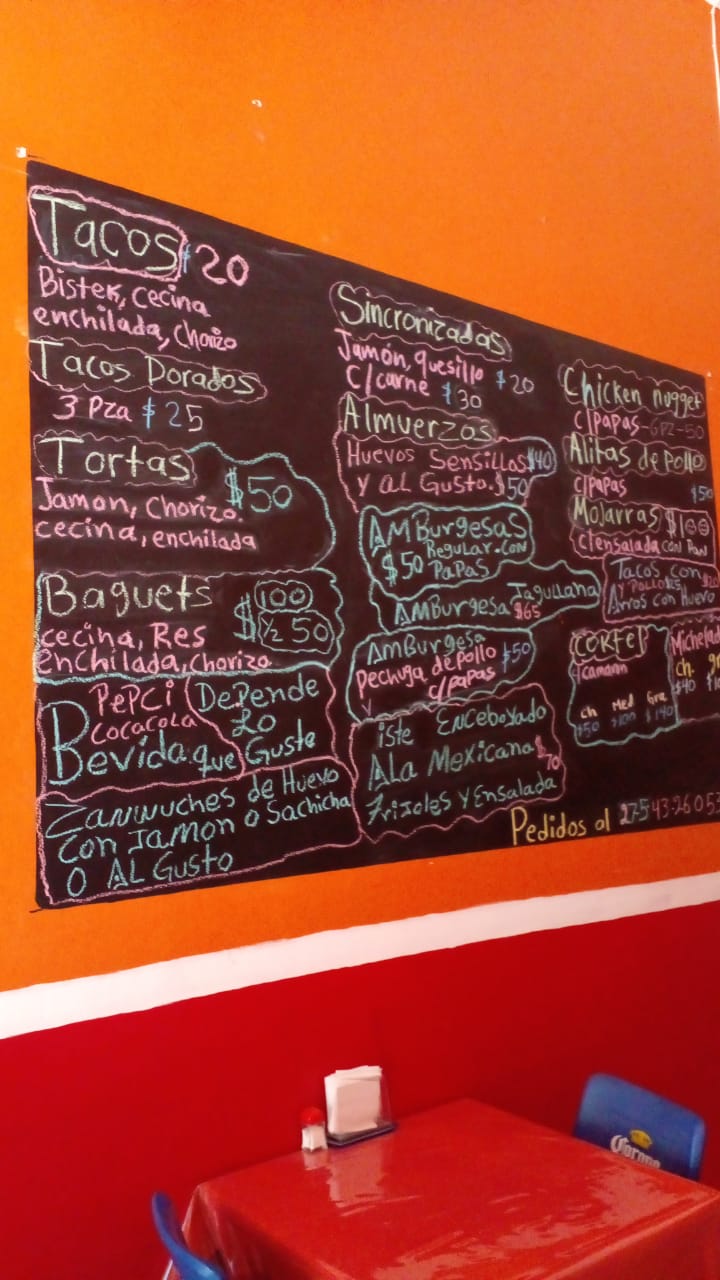 Tacos $20
Bistek, cecina
enchilada, chorizo
Tacos Dorados
3 Pza $25
Tortas $50
Jamon, Chorizo.
cecina, enchilada
Baguets $ 100
1/2 50
cecina, Res
enchilada, chorizo
PePCi
cocacola
Bevida que Guste
DePende
Lo
Zanwuches de Huevo
con Jamon o Sachicha
O AL Gusto
Sincronizadas
Jamón, quesillo $20
C/carne $30
Almuerzos
Huevos Sensillos $40
y aL Gusto. $50
AMBurgesas
Regular-con
$50 PaPas
AMBurgesa Jagullana
$65
AMBurgesa
Pechuga de pollo $50
c/papas
Biste Encebollado
ALa Mexicana $70
Frijoles y Ensalada
Chicken nugget
c/papas - 6Pz - 50
Alitas de pollo
c/papas $50
Mojarras $100
c/ensalada con Pan
Tacos con
y Pollo
Arros con Huevo
COKTEL
camaron
ch Med Gra
$50 $100 $140
Michelad
ch.
$40
Pedidos al 27-5-43-26 05
Corona